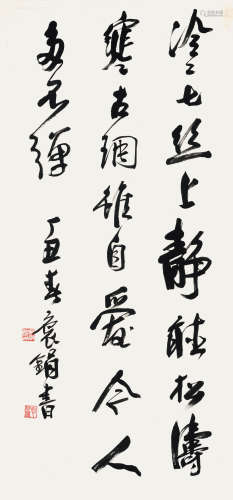 泠々七丝上静聽松濤
寒古調雖自愛今人
多不彈 丁丑春袁書